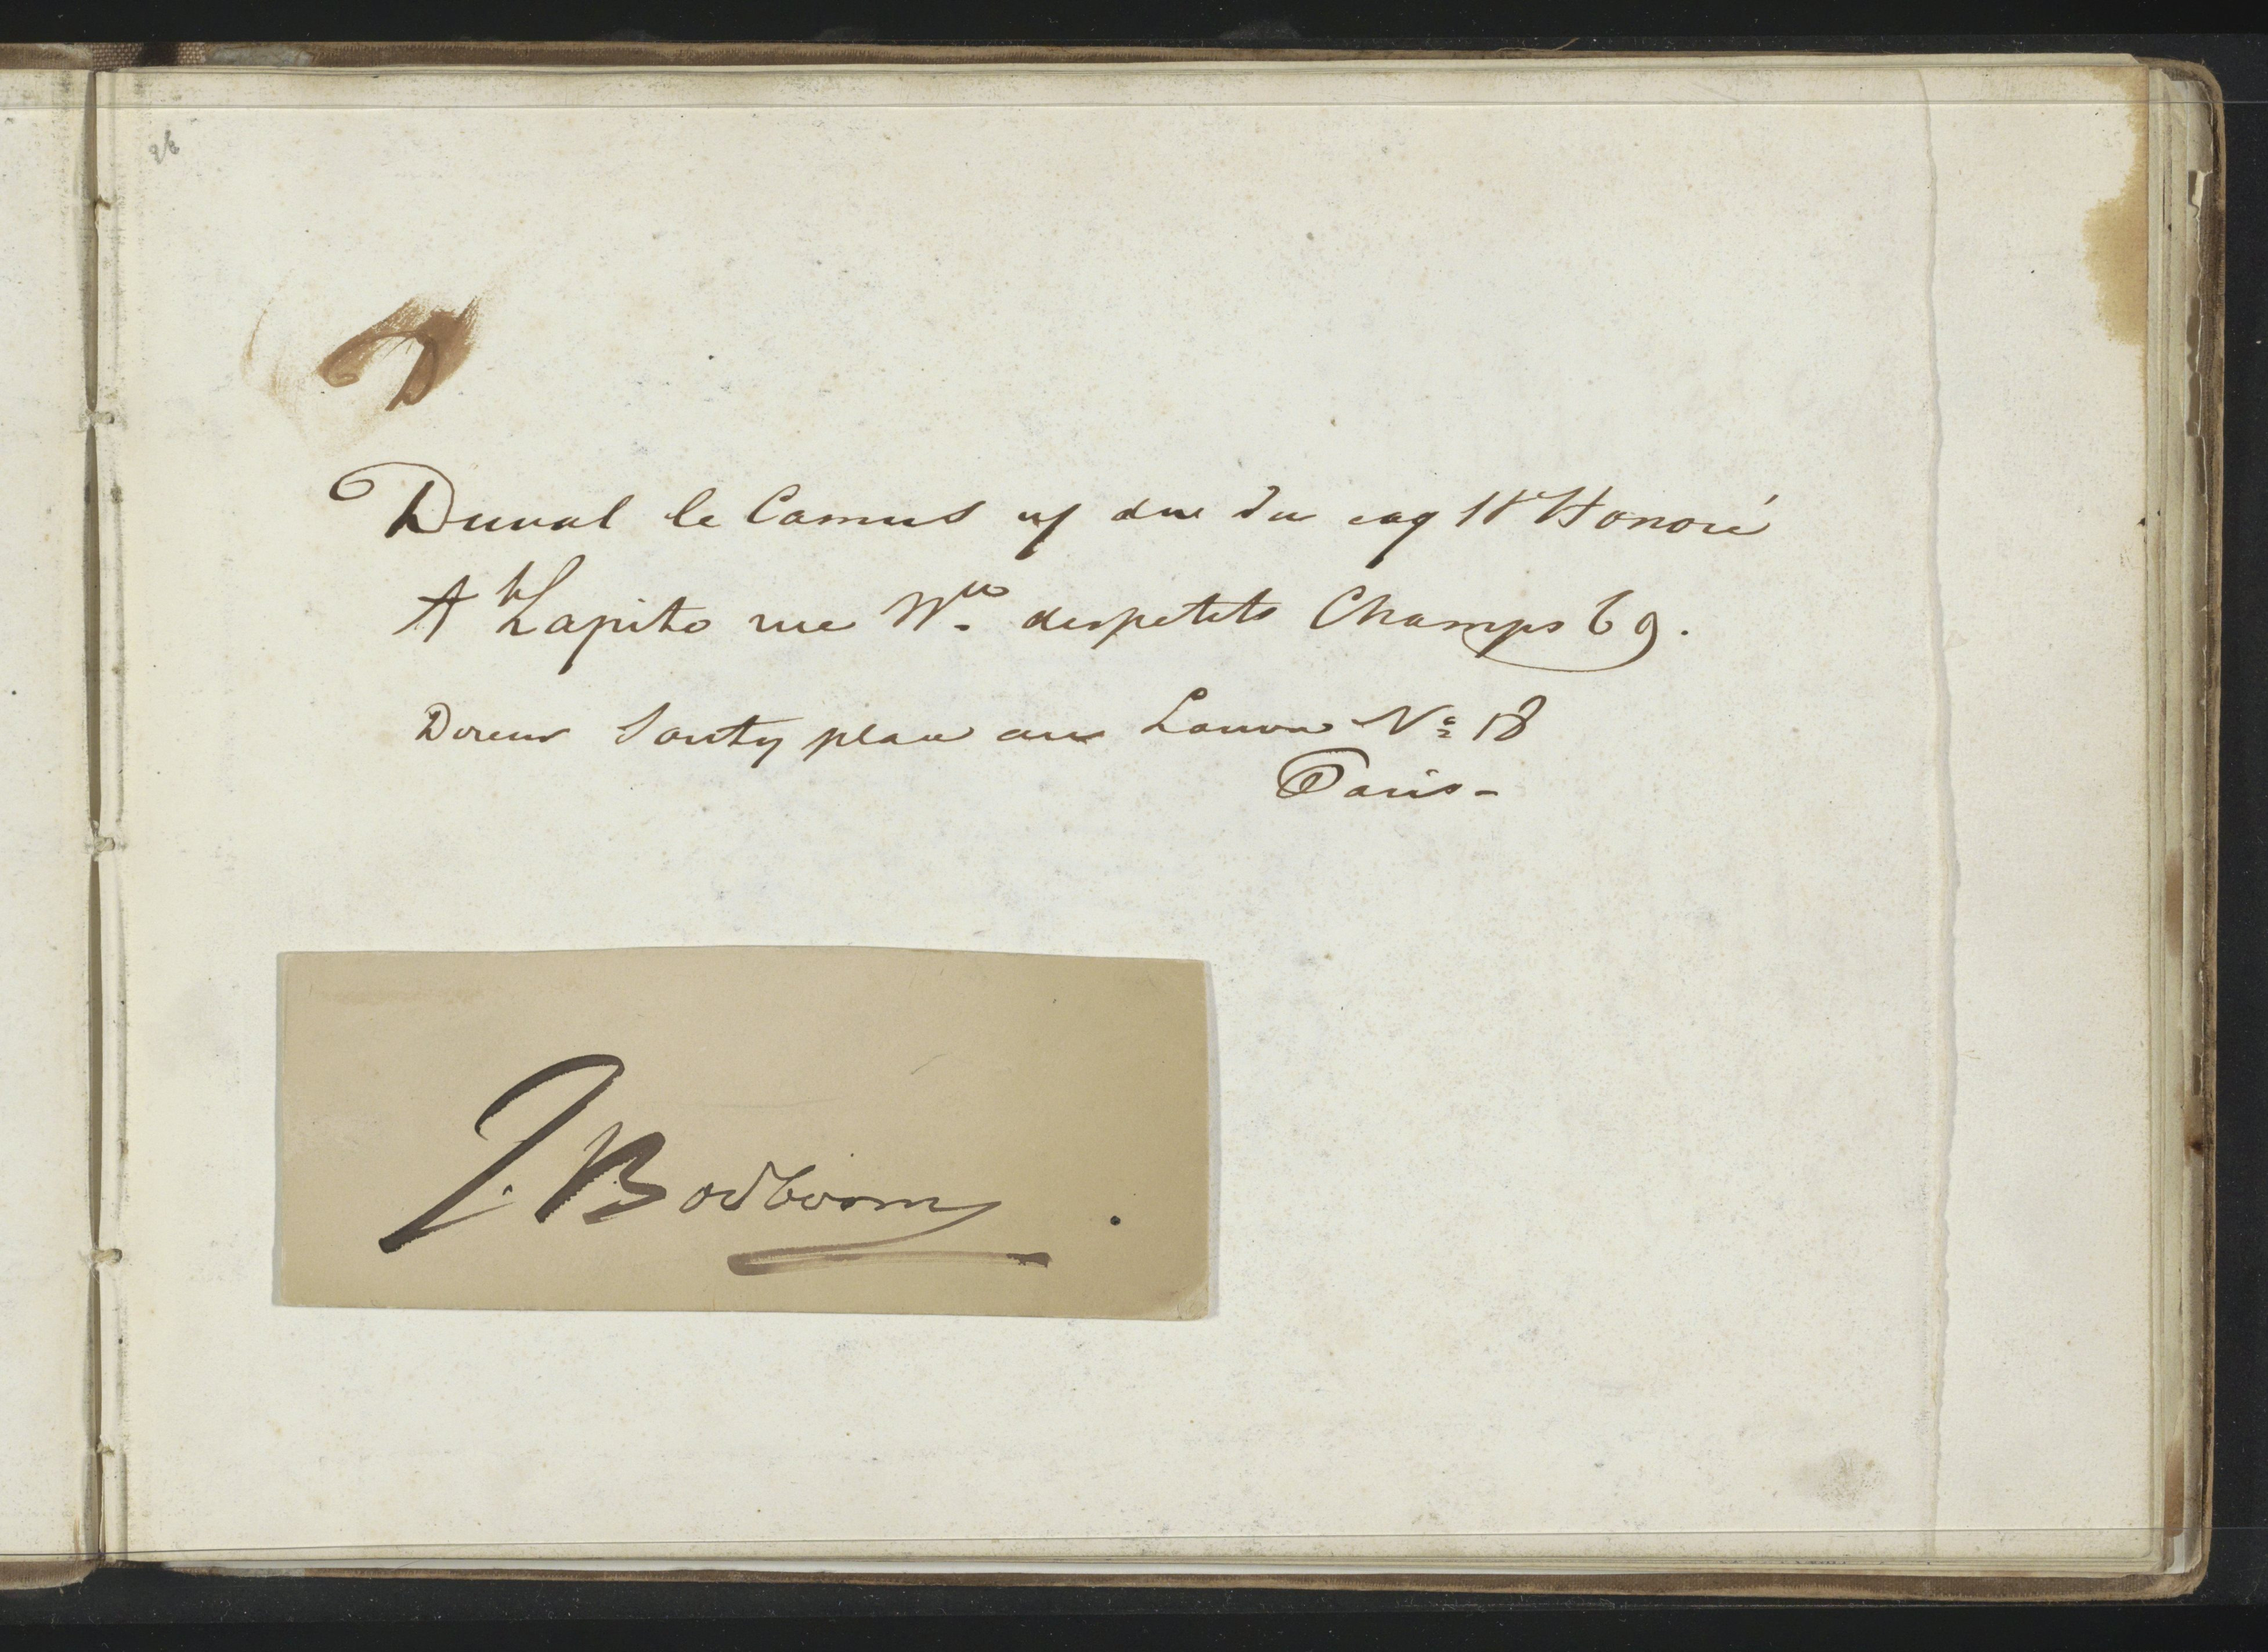 26
Duval le Camus 4 rue du coq St Honoré
Ah Lapito rue Nve des petits Champs 69.
Doreur Souty place du Louvre No 18
Paris-
J. Bosboom.